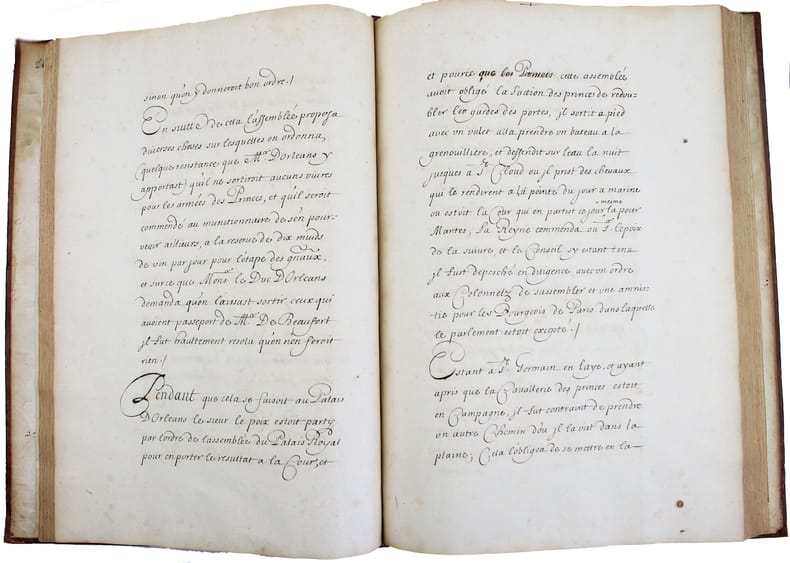 sinon qu'on y donneroit bon ordre./
En suitte de cela l'assemblée proposa
diverses choses sur lesquelles on ordonna,
(quelque ronstance que Mr. D'Orleans y
apportast) qu'il ne sortiroit aucuns vivres
pour les armées des Princes, et qu'il seroit
commendé au munitionnaire de s'en pour-
veoir ailleurs, a la reserve de dix muids
de vin par jour pour l'étape des gnâux,
et sur ce que Monsr. le Duc D'Orleans
demanda qu'on laissast sortir ceux qui
avoient passeport de Mr. De Beaufort
jl fut haultement resolu qu'on n'en feroit
rien./
Pendant que cela se faisoit au Palais
D'Orleans le sieur le poix estoit party
par l'ordre de l'assemblée du Palais Royal
pour en porter le resultat a la Cour, et
et pource que les Princes cette assemblée
avoit obligé la faction des princes de redou-
bler les gardes des portes, jl sortit a pied
avec un valet alla prendre un bateau a la
grenouilliere, et dessendit sur l'eau la nuit
jusques a St. Cloud ou jl prist des chevaux
qui le rendirent a la pointe du jour a marine
ou estoit la Cour qui en partist ce jour la mesme pour
Mantes, la Reyne commenda au Sr. le poix
de la suivre, et le Conseil s'y estant tenu
jl fust depesché en diligence avec un ordre
aux Colonnelz de s'assembler et une amnis-
tie pour les Bourgeois de Paris dans laquelle
le parlement estoit excepté./
Estant a St. Germain en laye, et ayant
apris que la Cavallerie des princes estoit
en Campagne, jl fut contraint de prendre
un autre Chemin d'ou jl la vit dans la
plaine; Cela l'obligea de se mettre en la